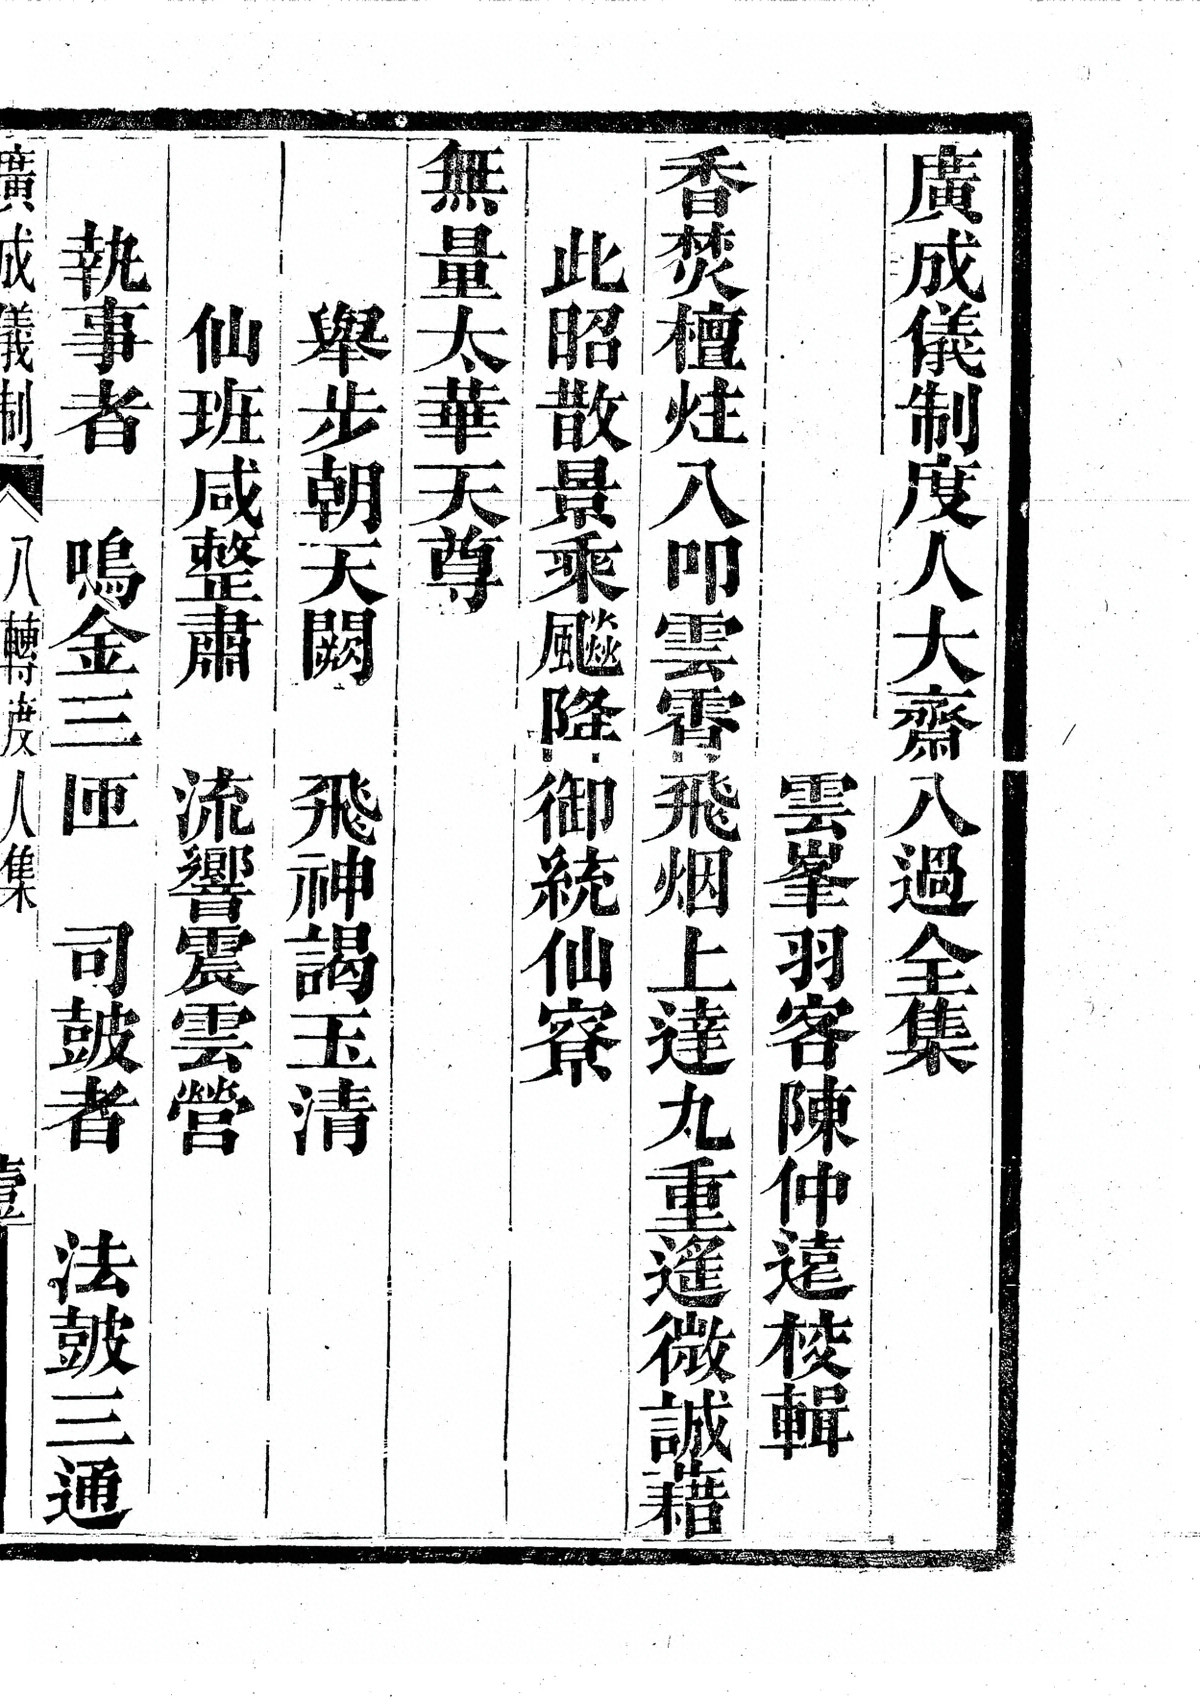 廣成儀制度人大齋八過全集
雲峯羽客陳仲遠校輯
香焚檀炷八叩雲霄飛烟上達九重遙微誠藉
此昭散景乘飈降御統仙寮
無量太華天尊
舉步朝天闕　飛神謁玉清
仙班咸整肅　流響震雲營
執事者　鳴金三匝　司鼓者　法鼓三通
廣成儀制　八轉度人集　壹